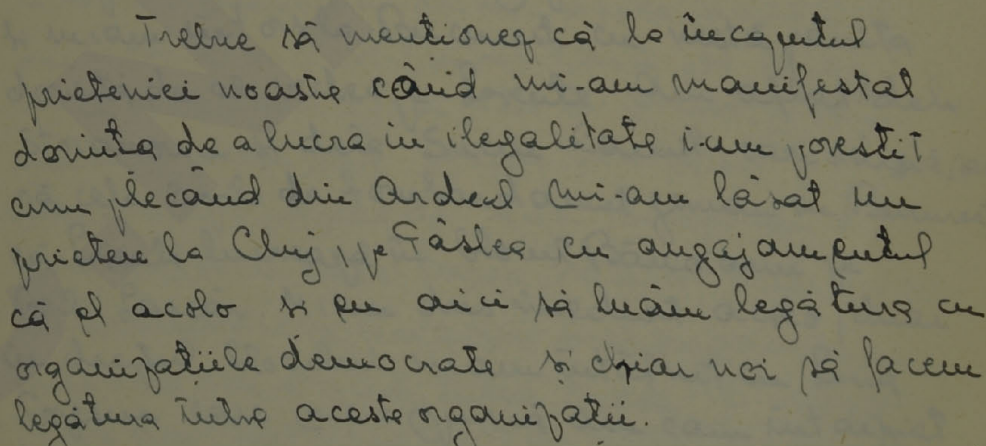 Trebue să mentionez că la începutul
prieteniei noastre când mi-am manifestat
dorința de a lucra in ilegalitate i-am povestit
cum plecând din Ardeal mi-am lăsat un
prieten la Cluj, pe Gâslea cu angajamentul
că el acolo si eu aici să luăm legătura cu
organizatiile democrate si chiar noi să facem
legătura între aceste organizatii.